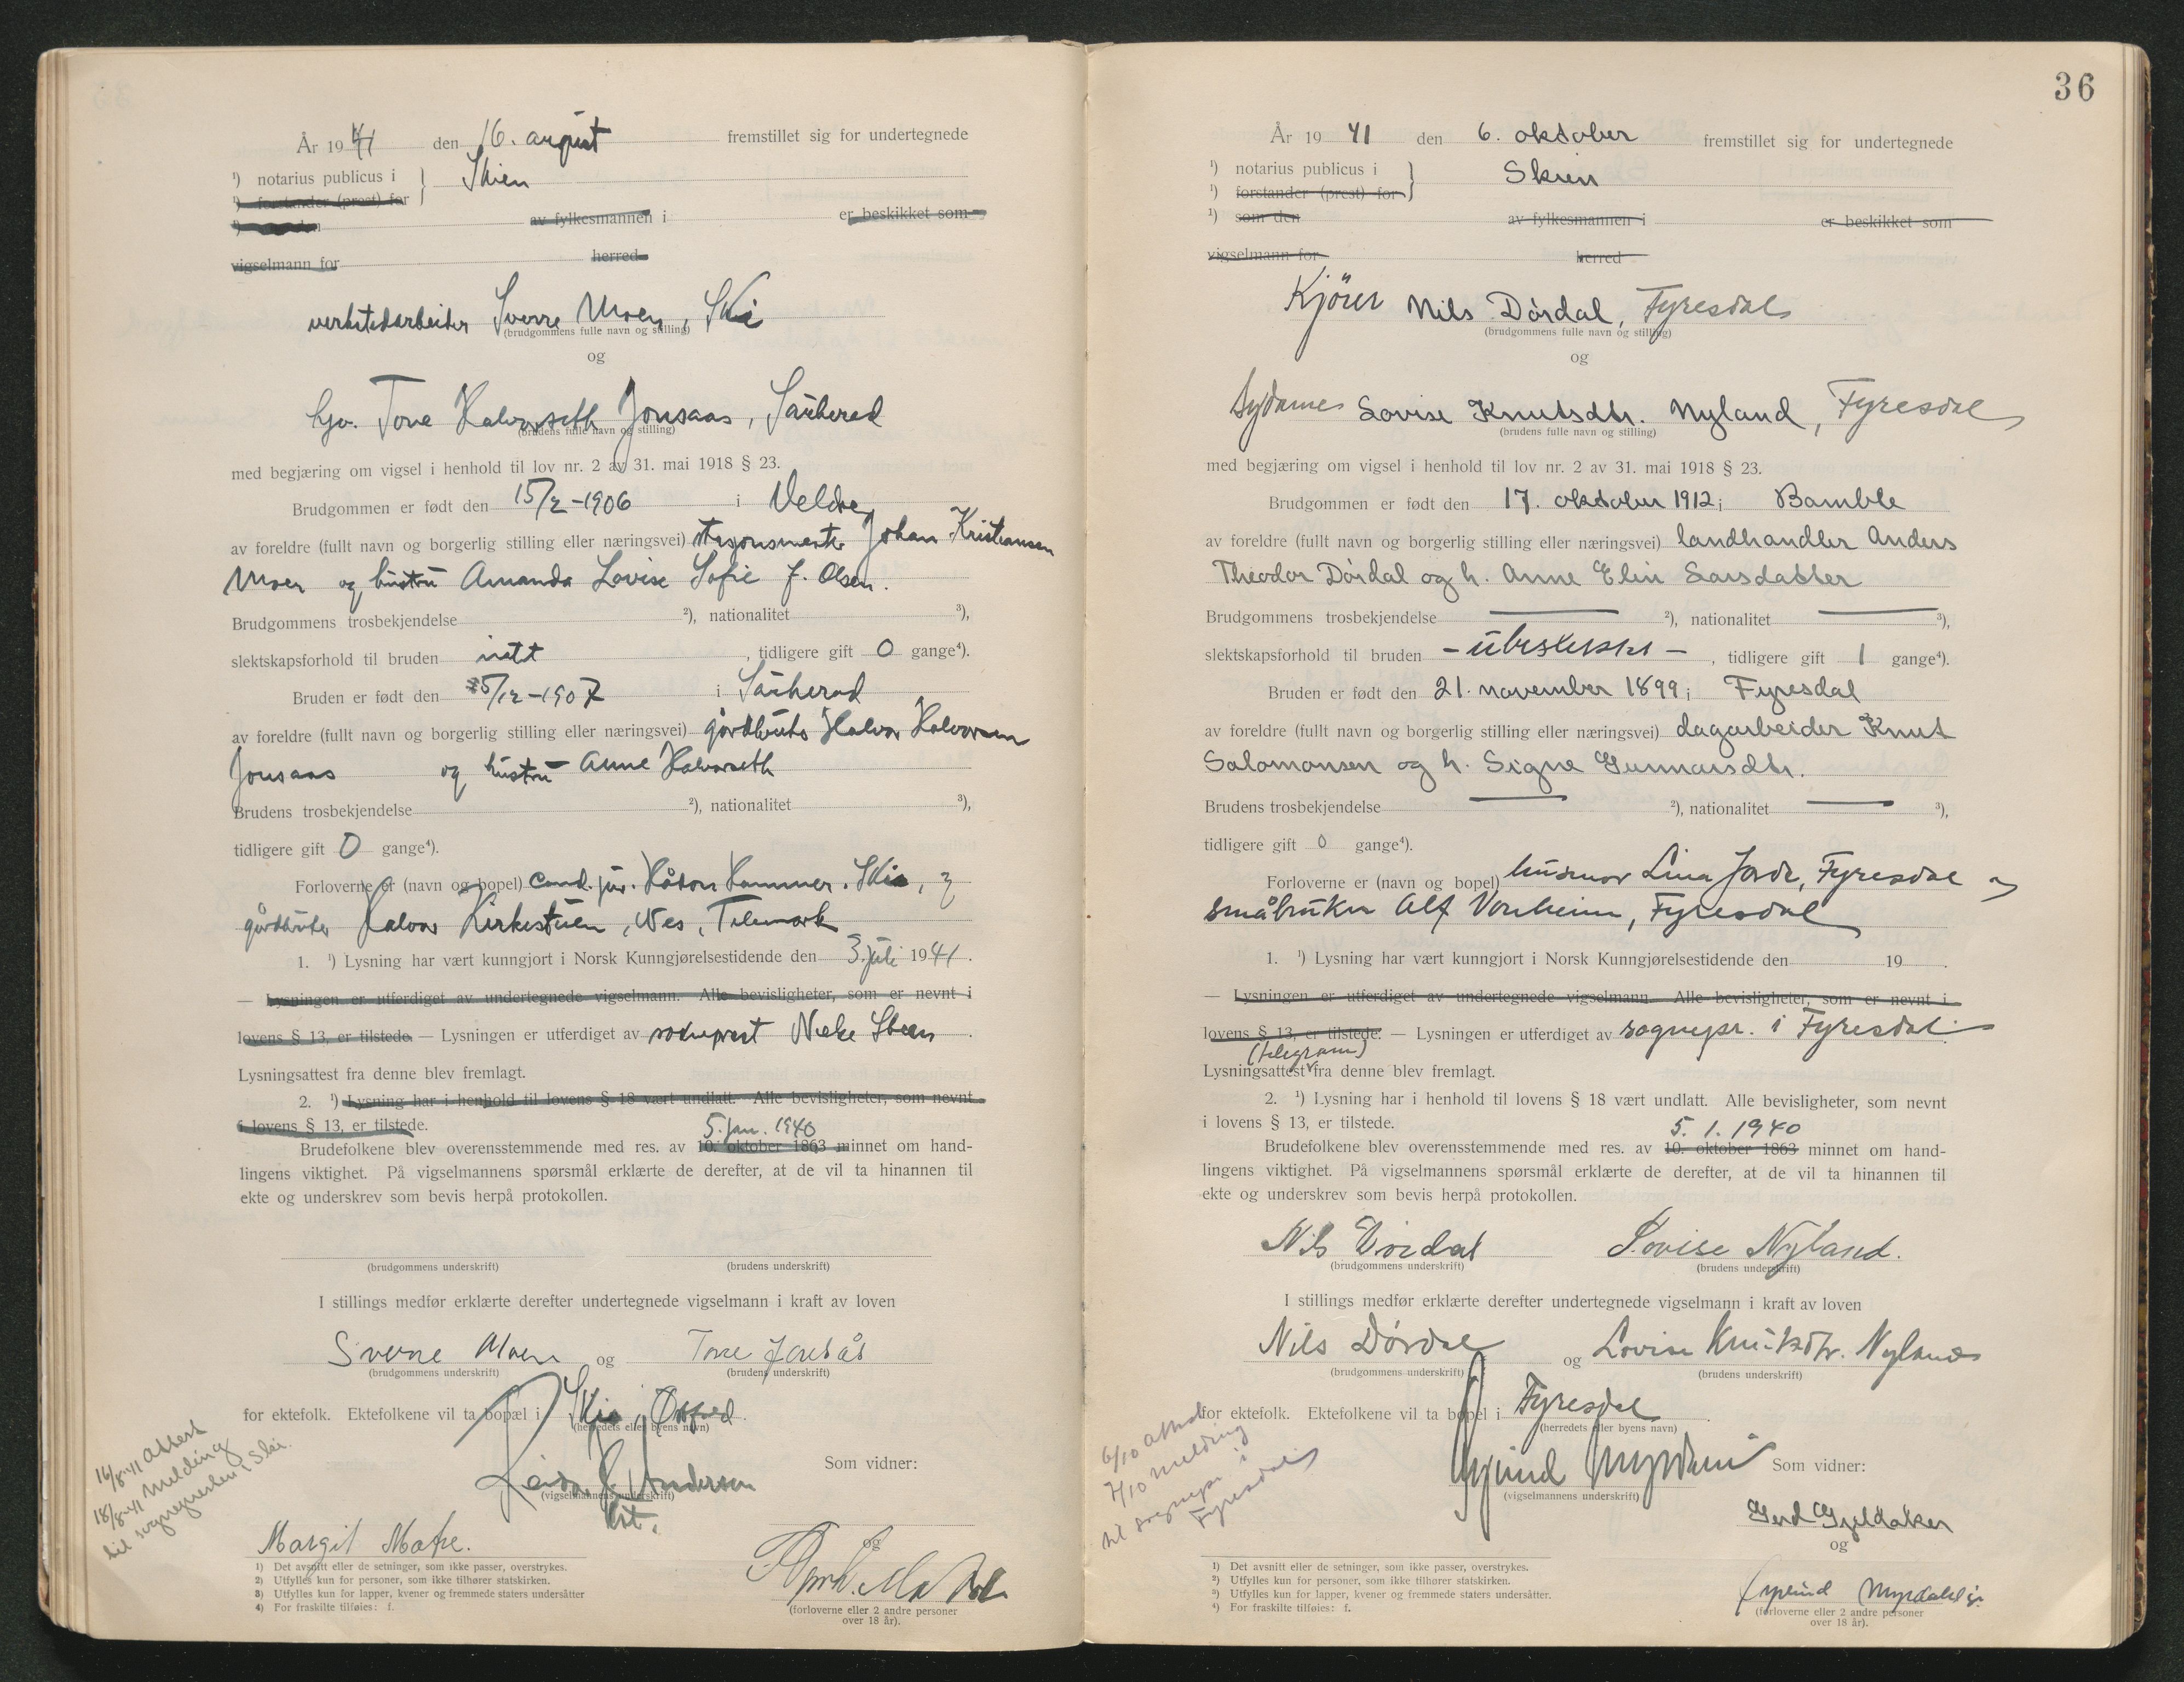 År 1941 den 16. august fremstillet sig for undertegnede
¹) notarius publicus i } Skien
¹) forstander (prest) for
av fylkesmannen i er beskikket som
vigselmann for herred
verkstedarbeider Sverre Moen, Ski
(brudgommens fulle navn og stilling)
og
Tone Halvorseth Jonsaas, Sauherad
(brudens fulle navn og stilling)
med begjæring om vigsel i henhold til lov nr. 2 av 31. mai 1918 § 23.
Brudgommen er født den 15/2-1906 i Veldre
av foreldre (fullt navn og borgerlig stilling eller næringsvei) stasjonsmester Johan Kristiansen
Moen og hustru Amanda Lovise Sofie f. Olsen.
Brudgommens trosbekjendelse ²), nationalitet ³),
slektskapsforhold til bruden intet, tidligere gift 0 gange⁴).
Bruden er født den 25/12-1907 i Sauherad
av foreldre (fullt navn og borgerlig stilling eller næringsvei) gårdbruker Halvor Halvorsen
Jonsaas og hustru Anne Halvorseth
Brudens trosbekjendelse ²), nationalitet ³),
tidligere gift 0 gange⁴).
Forloverne er (navn og bopel) cand. jur. Håkon Hammer, Ski, og
gårdbruker Halvor Kirkestuen, Nes, Telemark
1. ¹) Lysning har vært kunngjort i Norsk Kunngjørelsestidende den 3. juli 1941.
— Lysningen er utferdiget av undertegnede vigselmann. Alle bevisligheter, som er nevnt i
lovens § 13, er tilstede. — Lysningen er utferdiget av sokneprest Steen.
Lysningsattest fra denne blev fremlagt.
2. ¹) Lysning har i henhold til lovens § 18 vært undlatt. Alle bevisligheter, som nevnt
i lovens § 13, er tilstede.
5. jan. 1940
Brudefolkene blev overensstemmende med res. av 10. oktober 1863 minnet om hand-
lingens viktighet. På vigselmannens spørsmål erklærte de derefter, at de vil ta hinannen til
ekte og underskrev som bevis herpå protokollen.
(brudgommens underskrift) (brudens underskrift)
I stillings medfør erklærte derefter undertegnede vigselmann i kraft av loven
Sverre Moen og Tone Jonsås
(brudgommens underskrift) (brudens underskrift)
for ektefolk. Ektefolkene vil ta bopæl i Ski, Østfold
(herredets eller byens navn)
16/8-41 attest
18/8-41 melding
til sognepresten i Ski.
Reidar Andersen
(vigselmannens underskrift)
Som vidner:
Margit Matre.
og
(forloverne eller 2 andre personer
over 18 år).
1) Det avsnitt eller de setninger, som ikke passer, overstrykes.
2) Utfylles kun for personer, som ikke tilhører statskirken.
3) Utfylles kun for lapper, kvener og fremmede staters undersåtter
4) For fraskilte tilføies: f.
36
År 1941 den 6. oktober fremstillet sig for undertegnede
¹) notarius publicus i } Skien
¹) forstander (prest) for
¹) som den av fylkesmannen i er beskikket som
vigselmann for herred
Kjører Nils Dördal, Fyresdal
(brudgommens fulle navn og stilling)
og
Sydame Lovise Knutsdtr. Nyland, Fyresdal
(brudens fulle navn og stilling)
med begjæring om vigsel i henhold til lov nr. 2 av 31. mai 1918 § 23.
Brudgommen er født den 17. oktober 1912 i Bamble
av foreldre (fullt navn og borgerlig stilling eller næringsvei) landhandler Anders
Theodor Dördal og h. Anne Elin Larsdatter
Brudgommens trosbekjendelse — ²), nationalitet — ³),
slektskapsforhold til bruden - ubeslektet -, tidligere gift 1 gange⁴).
Bruden er født den 21. november 1899 i Fyresdal
av foreldre (fullt navn og borgerlig stilling eller næringsvei) dagarbeider Knut
Salomonsen og h. Signe Gunnarsdtr.
Brudens trosbekjendelse — ²), nationalitet — ³),
tidligere gift 0 gange⁴).
Forloverne er (navn og bopel) husmor Lina Jorde, Fyresdal og
småbruker Alf Vonheim, Fyresdal
1. ¹) Lysning har vært kunngjort i Norsk Kunngjørelsestidende den 19 .
— Lysningen er utferdiget av undertegnede vigselmann. Alle bevisligheter, som er nevnt i
lovens § 13, er tilstede. — Lysningen er utferdiget av sognepr. i Fyresdal.
(telegram)
Lysningsattest fra denne blev fremlagt.
2. ¹) Lysning har i henhold til lovens § 18 vært undlatt. Alle bevisligheter, som nevnt
i lovens § 13, er tilstede.
5. 1. 1940
Brudefolkene blev overensstemmende med res. av 10. oktober 1863 minnet om hand-
lingens viktighet. På vigselmannens spørsmål erklærte de derefter, at de vil ta hinannen til
ekte og underskrev som bevis herpå protokollen.
Nils Dördal Lovise Nyland.
(brudgommens underskrift) (brudens underskrift)
I stillings medfør erklærte derefter undertegnede vigselmann i kraft av loven
Nils Dördal og Lovise Knutsdtr. Nyland
(brudgommens underskrift) (brudens underskrift)
for ektefolk. Ektefolkene vil ta bopel i Fyresdal.
(herredets eller byens navn)
6/10 attest
7/10 melding
til sognepr. i
Fyresdal
Øyvind Myrdahl
(vigselmannens underskrift)
Som vidner:
Gerd Gjeldaker
og
Øyvind Myrdahl jr.
(forloverne eller 2 andre personer
over 18 år).
¹) Det avsnitt eller de setninger, som ikke passer, overstrykes.
²) Utfylles kun for personer, som ikke tilhører statskirken.
³) Utfylles kun for lapper, kvener og fremmede staters undersåtter.
⁴) For fraskilte tilføies: f.